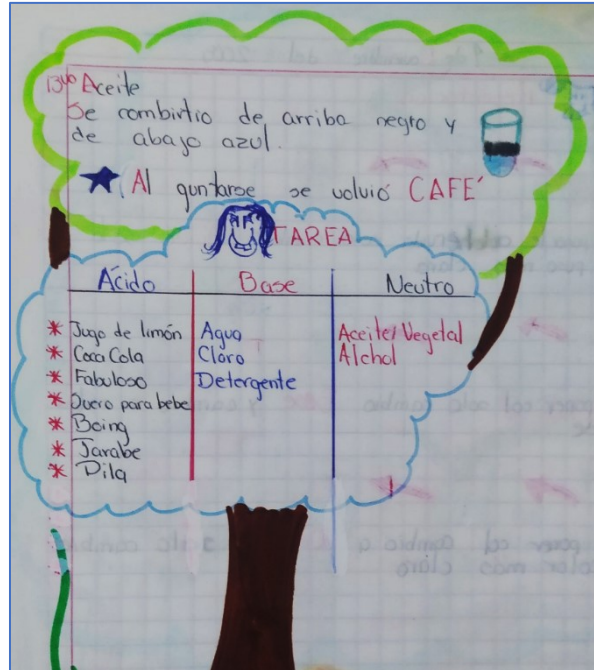 13vo Aceite
Se combirtio de arriba negro y
de abajo azul.
Al guntarse se volvió CAFÉ
TAREA
Ácido Base Neutro
* Jugo de limón Agua Aceite Vegetal
* Coca Cola Cloro Alchol
* Fabuloso Detergente
* Suero para bebe
* Boing
* Jarabe
* Pila